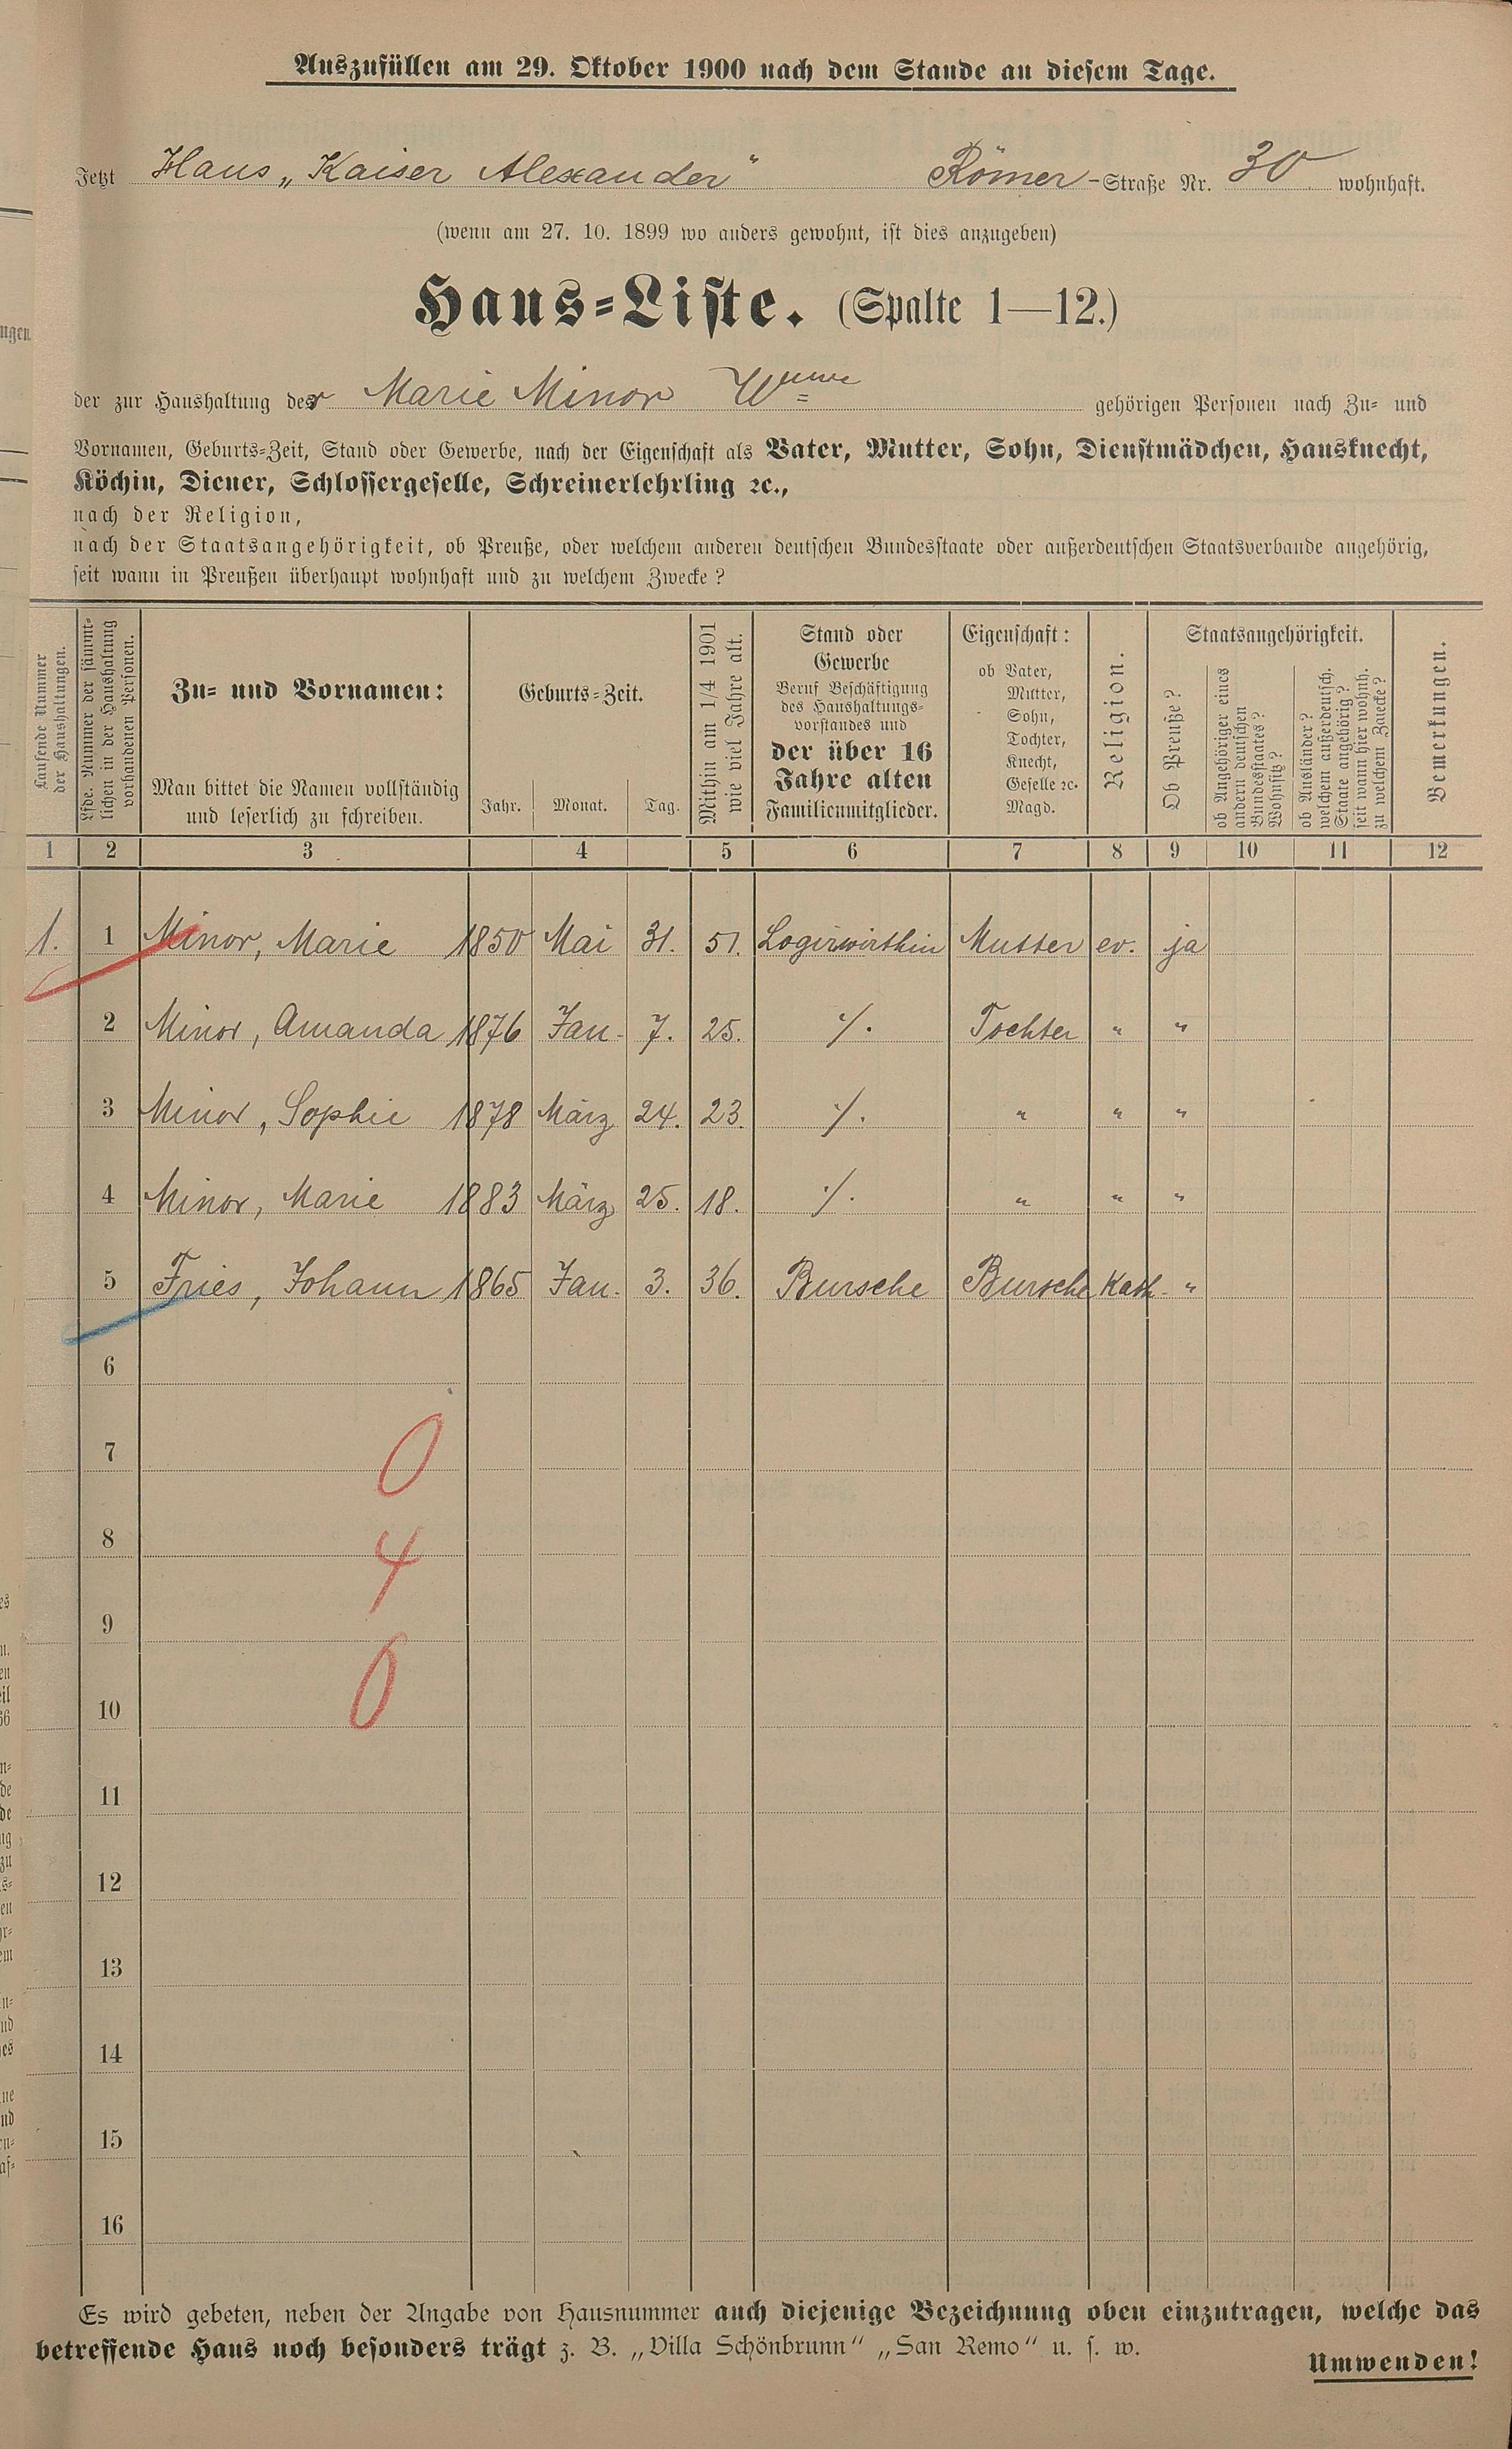 Auszufüllen am 29. Oktober 1900 nach dem Stande an diesem Tage.
Jetzt Haus „Kaiser Alexander“ Römer-Straße Nr. 30 wohnhaft.
(wenn am 27. 10. 1899 wo anders gewohnt, ist dies anzugeben)
Haus-Liste. (Spalte 1—12.)
der zur Haushaltung der Marie Minor Wwe gehörigen Personen nach Zu- und
Vornamen, Geburts-Zeit, Stand oder Gewerbe, nach der Eigenschaft als Vater, Mutter, Sohn, Dienstmädchen, Hausknecht,
Köchin, Diener, Schlossergeselle, Schreinerlehrling ꝛc.,
nach der Religion,
nach der Staatsangehörigkeit, ob Preuße, oder welchem anderen deutschen Bundesstaate oder außerdeutschen Staatsverbande angehörig,
seit wann in Preußen überhaupt wohnhaft und zu welchem Zwecke?
Laufende Nummer
der Haushaltungen.
Lfde. Nummer der sämmt-
lichen in der Haushaltung
vorhandenen Personen.
Zu- und Vornamen:
Man bittet die Namen vollständig
und leserlich zu schreiben.
Geburts-Zeit.
Jahr. Monat. Tag.
Mithin am 1/4 1901
wie viel Jahre alt.
Stand oder
Gewerbe
Beruf Beschäftigung
des Haushaltungs-
vorstandes und
der über 16
Jahre alten
Familienmitglieder.
Eigenschaft:
ob Vater,
Mutter,
Sohn,
Tochter,
Knecht,
Geselle ꝛc.
Magd.
Religion.
Staatsangehörigkeit.
Ob Preuße?
ob Angehöriger eines
andern deutschen
Bundesstaates?
Wohnsitz?
ob Ausländer?
welchem außerdeutsch.
Staate angehörig?
seit wann hier wohnh.
zu welchem Zwecke?
Bemerkungen.
1 2 3 4 5 6 7 8 9 10 11 12
1. 1 Minor, Marie 1850 Mai 31. 51. Logirwirthin Mutter ev. ja
2 Minor, Amanda 1876 Jan. 7. 25. ./. Tochter " "
3 Minor, Sophie 1878 März 24. 23. ./. " " "
4 Minor, Marie 1883 März 25. 18. ./. " " "
5 Fries, Johann 1865 Jan. 3. 36. Bursche Bursche Kath. "
6
7 0
8 4
9
10 0
11
12
13
14
15
16
Es wird gebeten, neben der Angabe von Hausnummer auch diejenige Bezeichnung oben einzutragen, welche das
betreffende Haus noch besonders trägt z. B. „Villa Schönbrunn“ „San Remo“ u. s. w.
Umwenden!